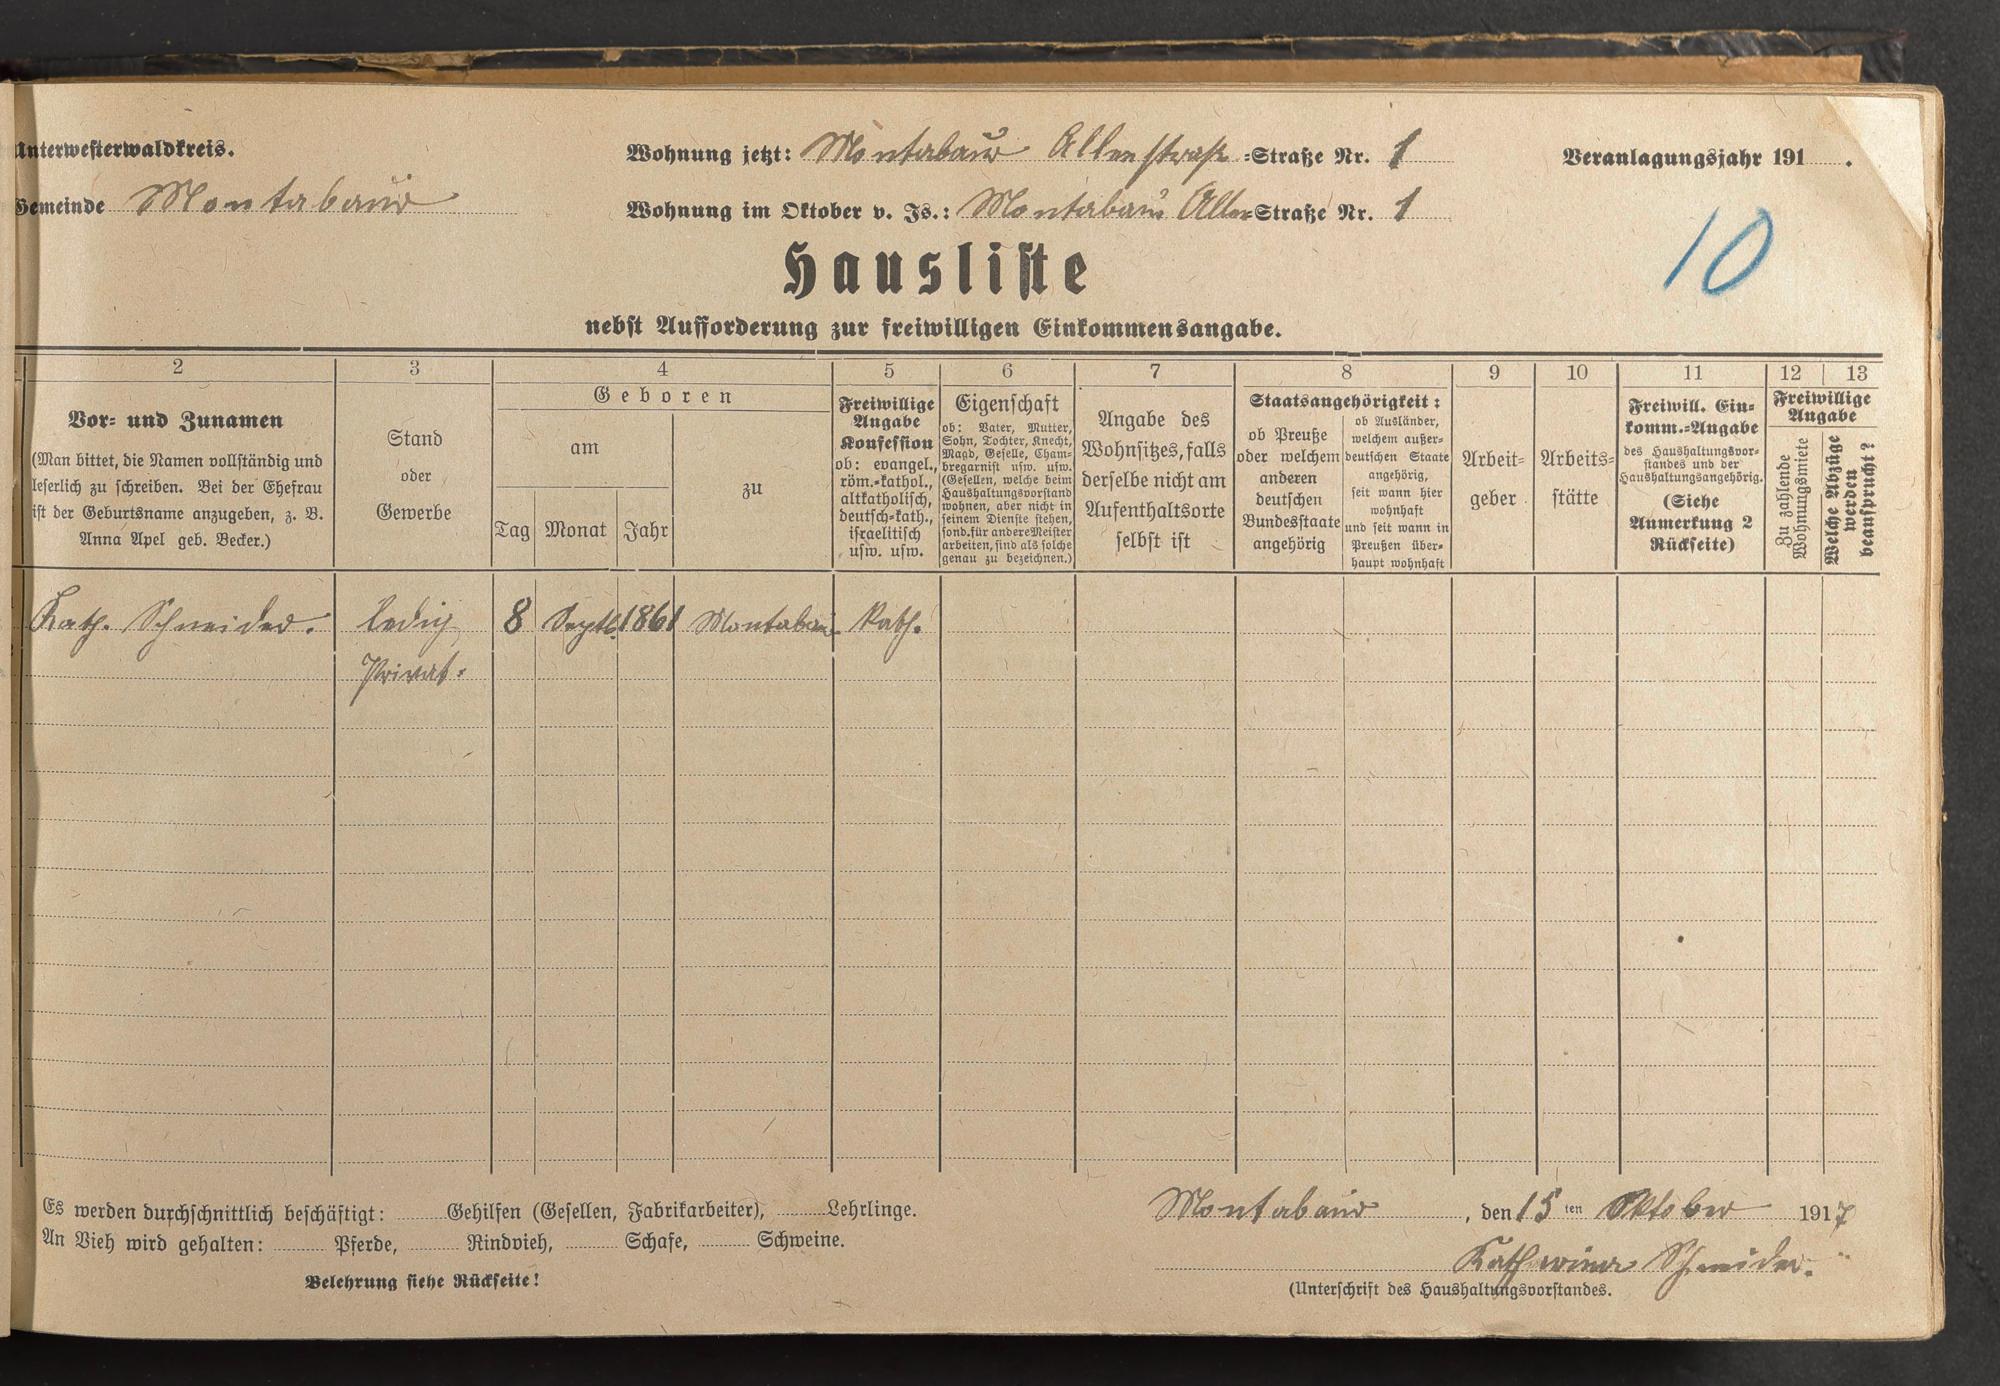 Unterwesterwaldkreis.
Wohnung jetzt: Montabaur Allenstraße =Straße Nr. 1
Veranlagungsjahr 191 .
Gemeinde Montabaur
Wohnung im Oktober v. Js.: Montabaur Allen=Straße Nr. 1
10
Hausliste
nebst Aufforderung zur freiwilligen Einkommensangabe.
2 3 4 5 6 7 8 9 10 11 12 13
Vor= und Zunamen
(Man bittet, die Namen vollständig und
leserlich zu schreiben. Bei der Ehefrau
ist der Geburtsname anzugeben, z. B.
Anna Apel geb. Becker.)
Stand
oder
Gewerbe
Geboren
am
Tag Monat Jahr
zu
Freiwillige
Angabe
Konfession
ob: evangel.,
röm.=kathol.,
altkatholisch,
deutsch=kath.,
israelitisch
usw. usw.
Eigenschaft
ob: Vater, Mutter,
Sohn, Tochter, Knecht,
Magd, Geselle, Cham=
bregarnist usw. usw.
(Gesellen, welche beim
Haushaltungsvorstand
wohnen, aber nicht in
seinem Dienste stehen,
sond. für andere Meister
arbeiten, sind als solche
genau zu bezeichnen.)
Angabe des
Wohnsitzes, falls
derselbe nicht am
Aufenthaltsorte
selbst ist
Staatsangehörigkeit:
ob Preuße
oder welchem
anderen
deutschen
Bundesstaate
angehörig
ob Ausländer,
welchem außer=
deutschen Staate
angehörig,
seit wann hier
wohnhaft
und seit wann in
Preußen über=
haupt wohnhaft
Arbeit=
geber
Arbeits=
stätte
Freiwill. Ein=
komm.=Angabe
des Haushaltungsvor=
standes und der
Haushaltungsangehörig.
(Siehe
Anmerkung 2
Rückseite)
Freiwillige
Angabe
Zu zahlende
Wohnungsmiete
Welche Abzüge
werden
beansprucht?
Kath. Schneider. ledig 8 Septb. 1861 Montabaur. Kath.
Privat=
Es werden durchschnittlich beschäftigt: Gehilfen (Gesellen, Fabrikarbeiter), Lehrlinge.
An Vieh wird gehalten: Pferde, Rindvieh, Schafe, Schweine.
Belehrung siehe Rückseite!
Montabaur, den 15 ten Oktober 1917
Katharina Schneider.
(Unterschrift des Haushaltungsvorstandes.